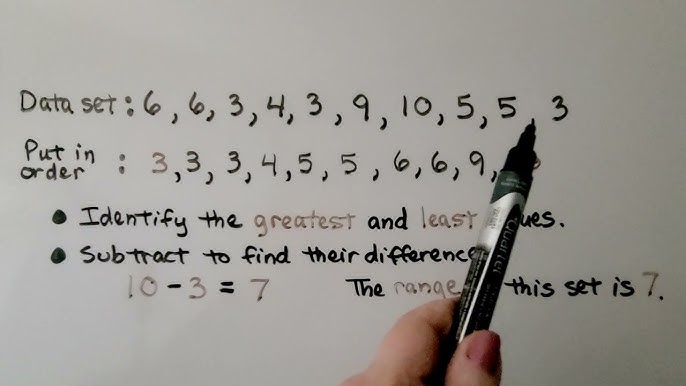 Data set: 6, 6, 3, 4, 3, 9, 10, 5, 5, 3
Put in order : 3, 3, 3, 4, 5, 5, 6, 6, 9,
• Identify the greatest and least
• Subtract to find their difference
10 - 3 = 7 The range this set is 7.